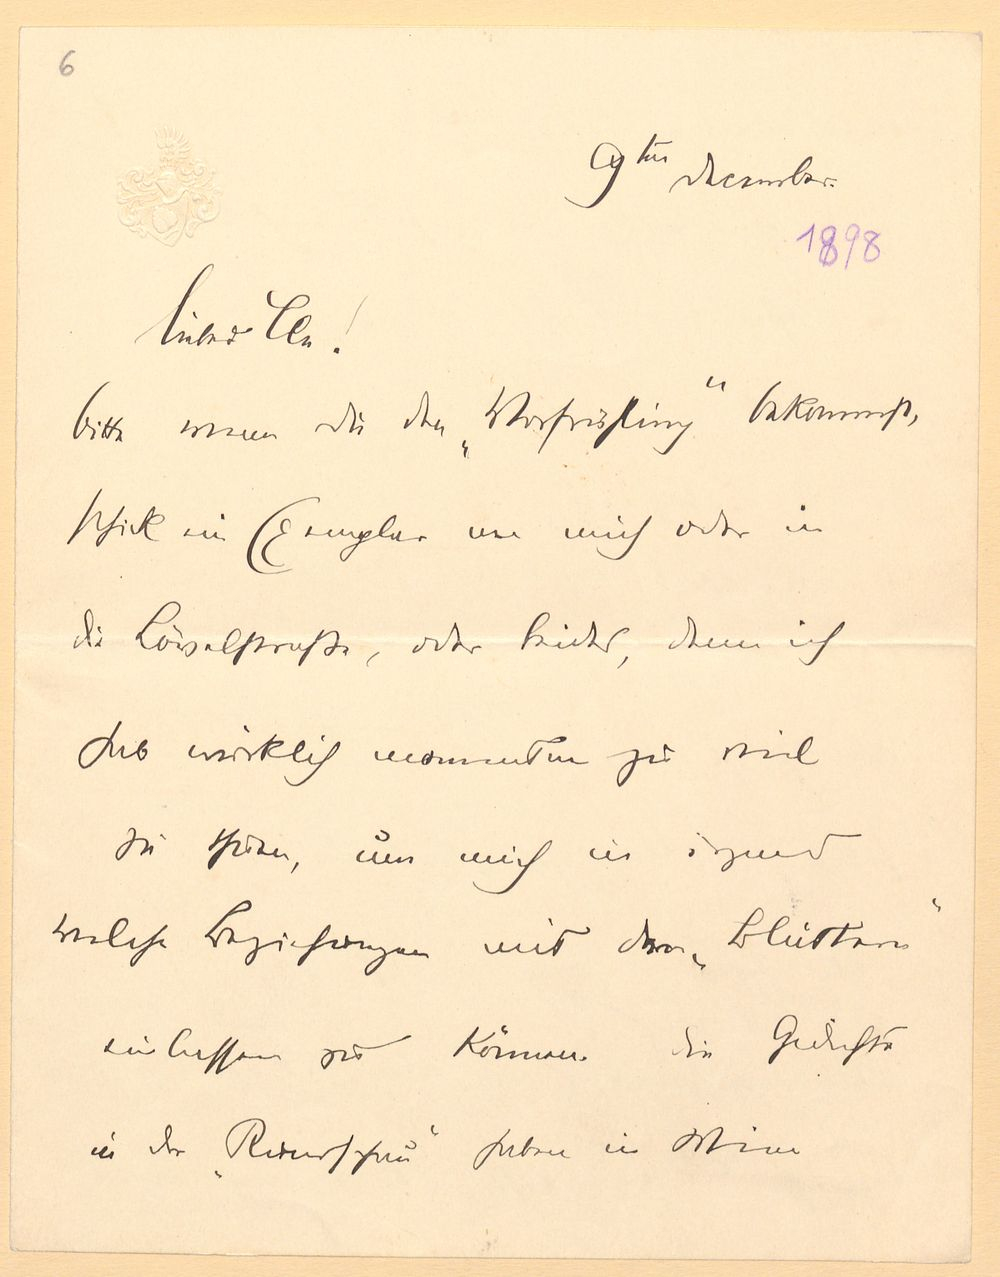 6
9ten December.
1898
lieber Clo!
bitte wenn du den „Vorfrühling“ bekommst,
schick ein Exemplar an mich oder in
die Löwelstrasse, oder beides, denn ich
hab wirklich momentan zu viel
zu thuen, um mich in irgend
welche Beziehungen mit den „Blättern“
einlassen zu können. die Gedichte
in der „Rundschau“ haben in Wien